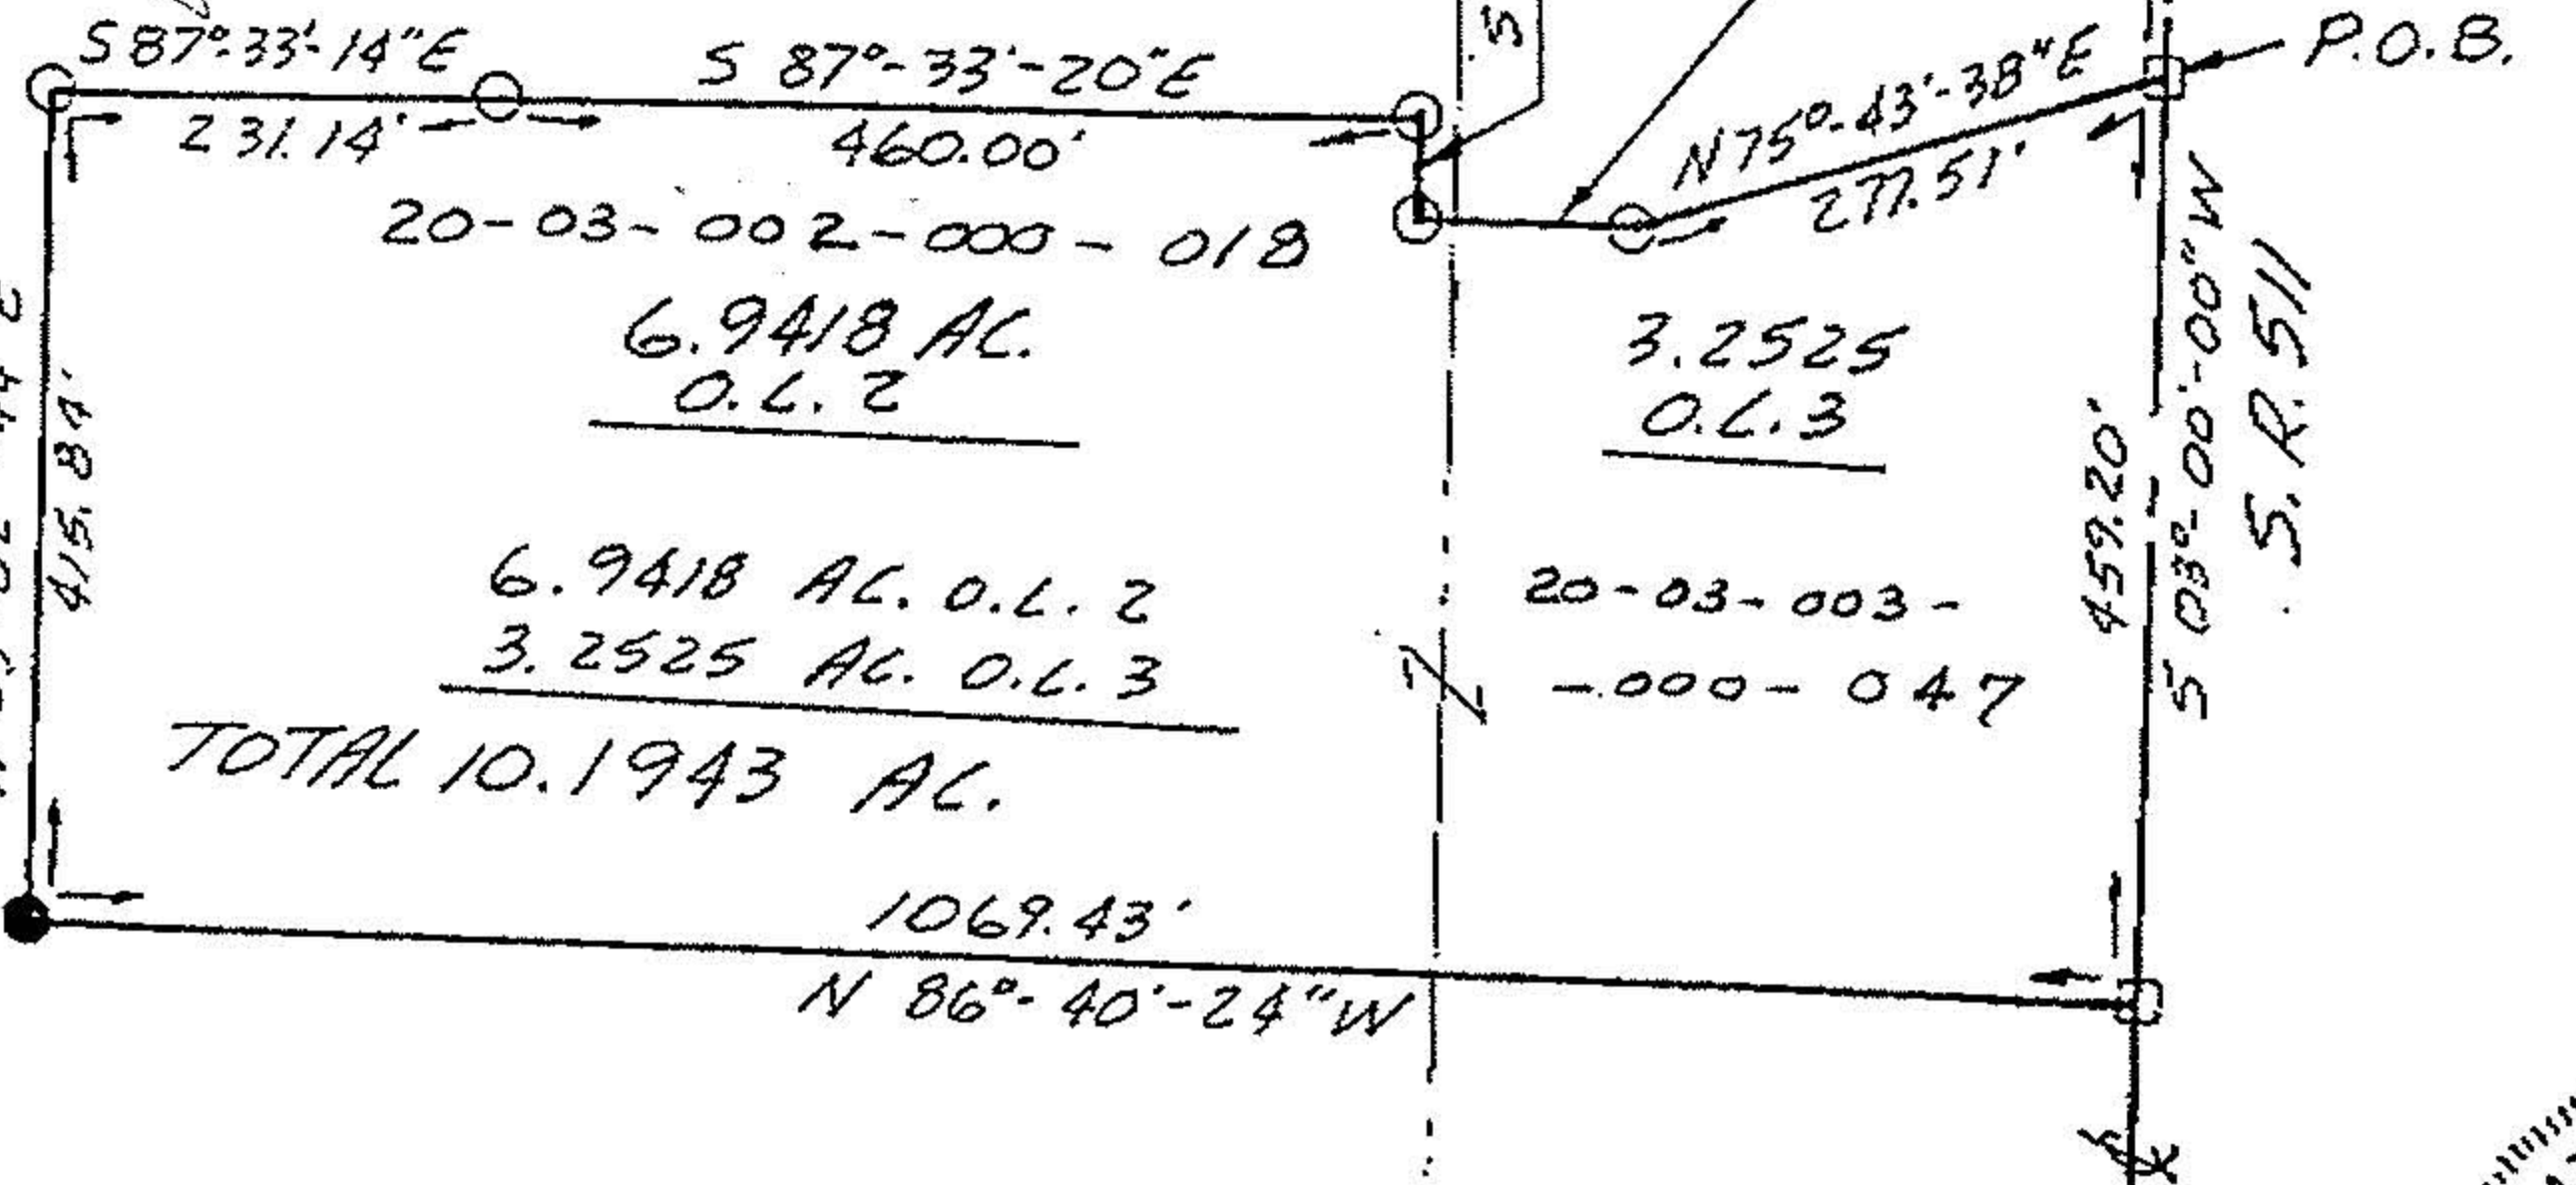 S 87°-33'-14"E
S 87°-33'-20"E
N 75°-43'-38"E
P.O.B.
231.14'
460.00'
277.51'
S
20-03-002-000-018
6.9418 AC.
O.L. 2
3.2525
O.L. 3
415.84'
459.20'
S 03°-00'-00"W
S.R. 511
6.9418 AC. O.L. 2
3.2525 AC. O.L. 3
TOTAL 10.1943 AC.
20-03-003-
-000-047
1069.43'
N 86°-40'-24"W